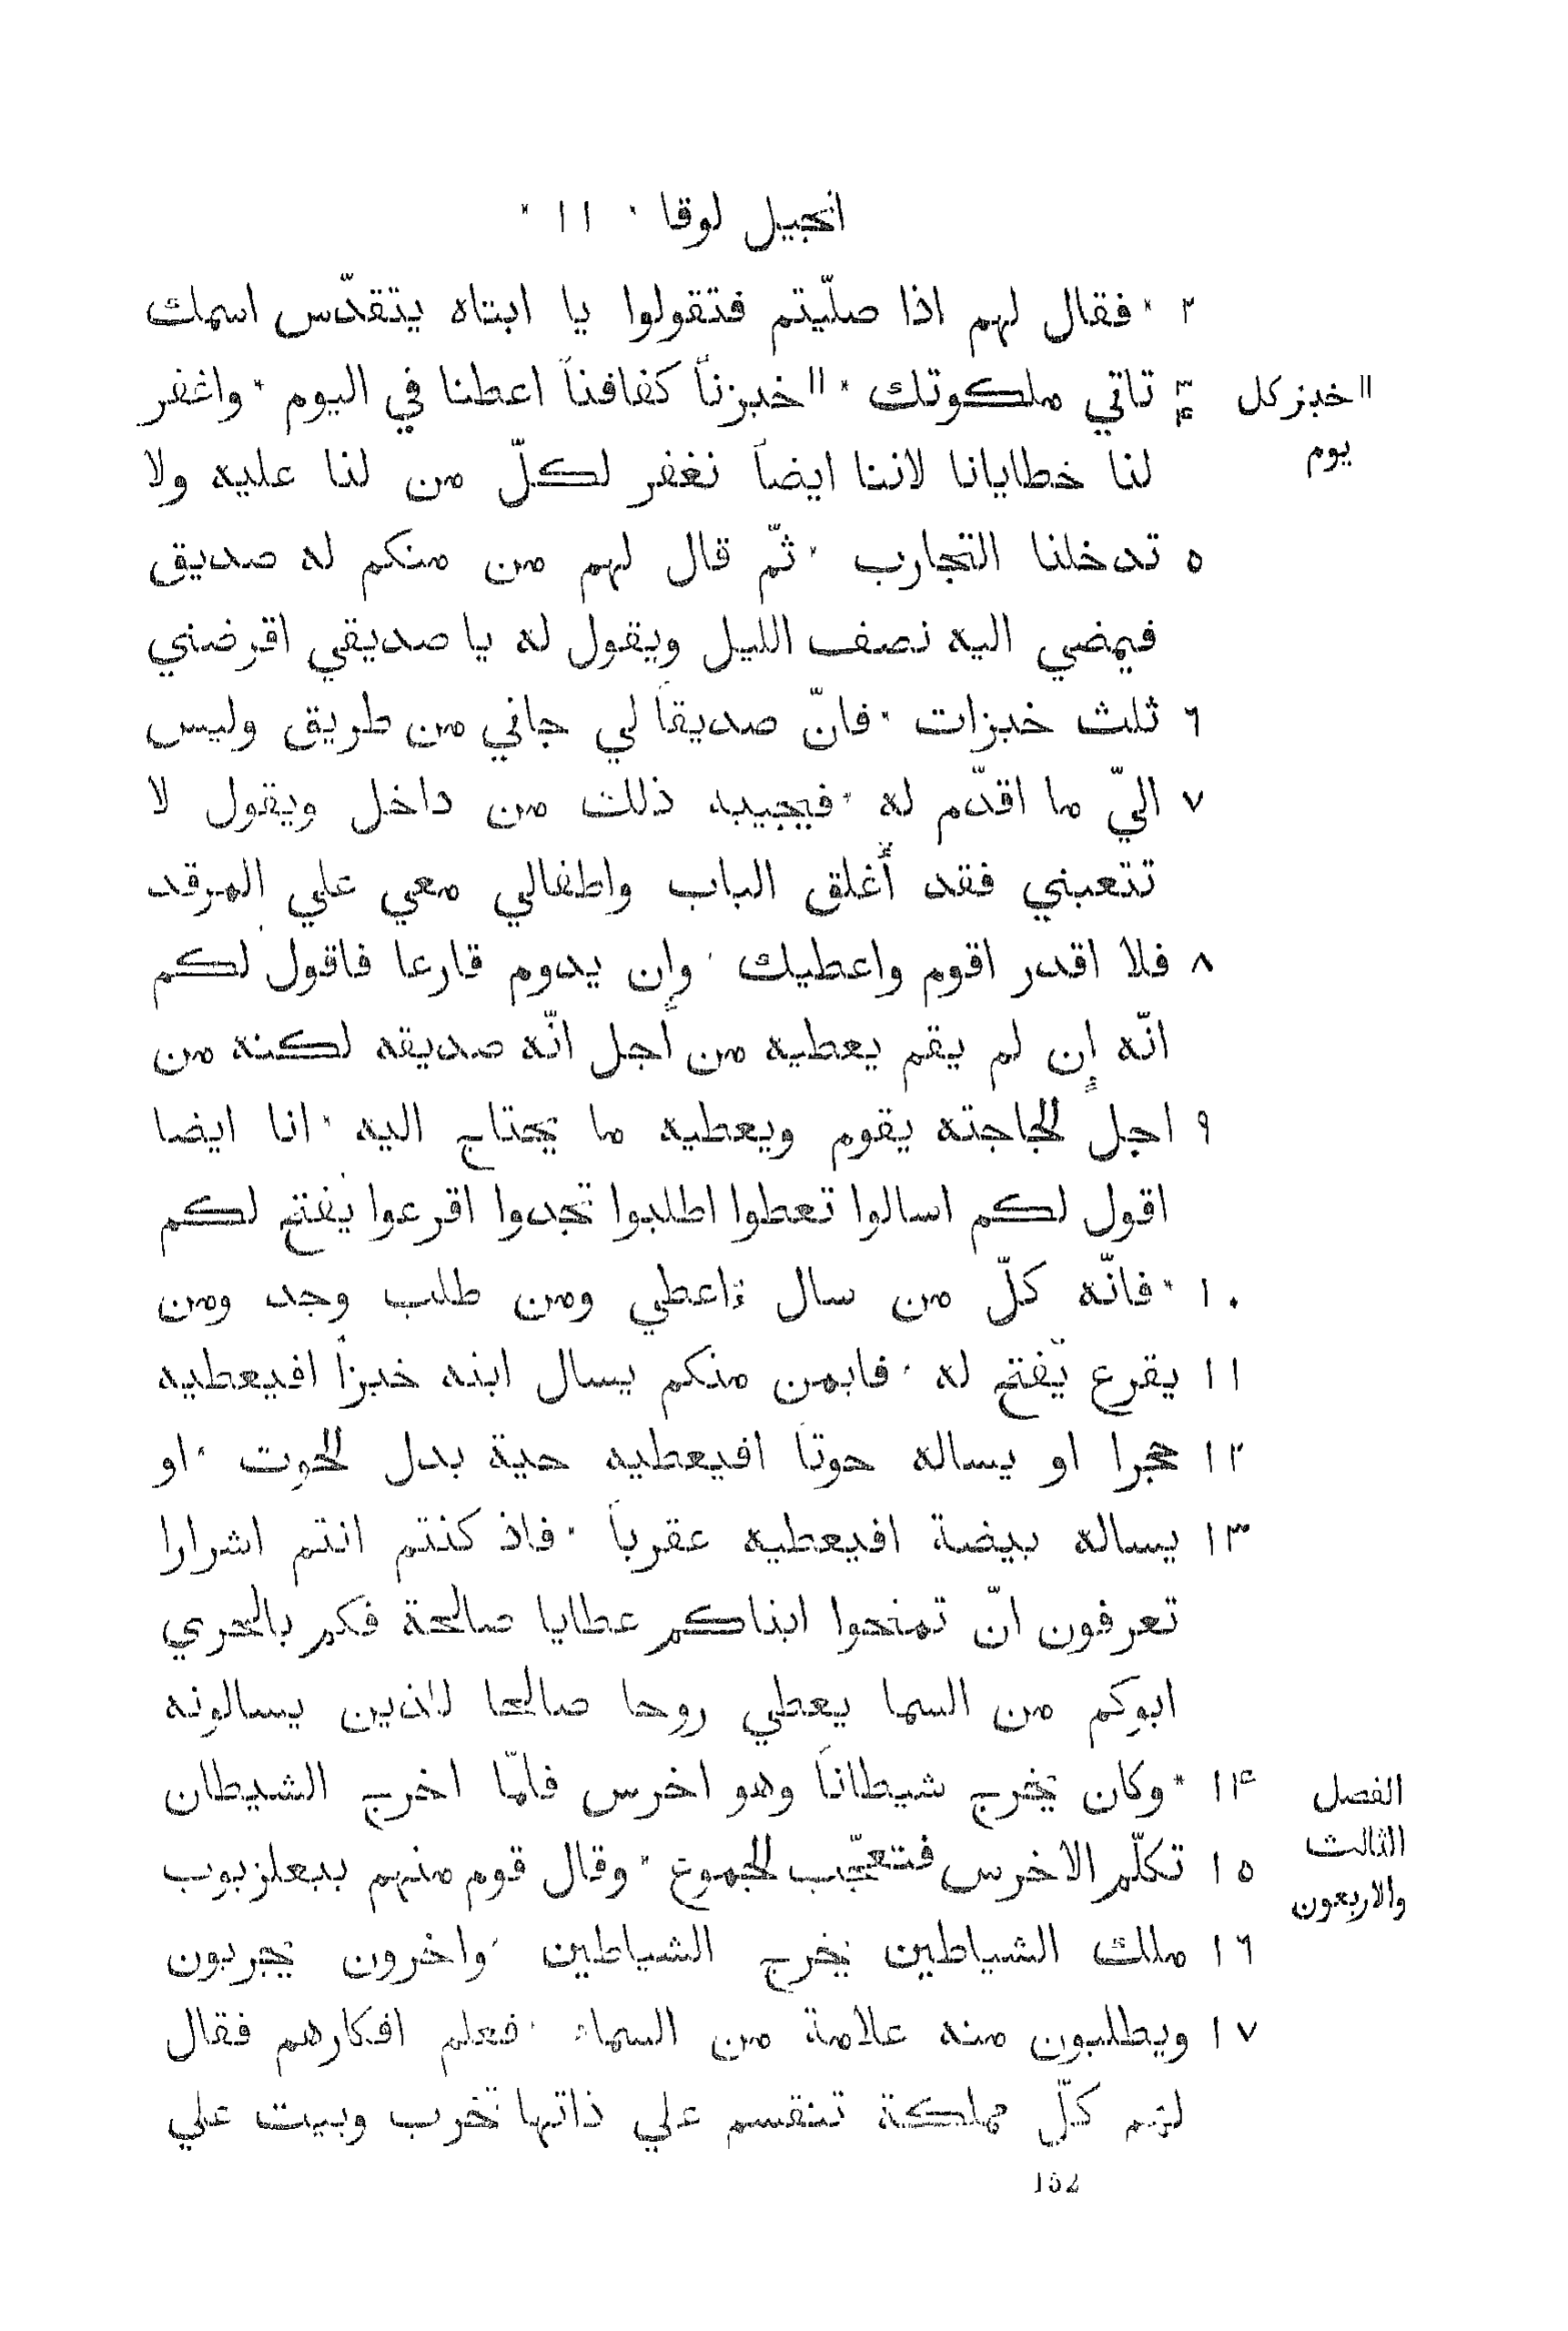 انجيل لوقا * ١١ *
٢ * فقال لهم اذا صلّيتم فتقولوا يا ابتاه يتقدّس اسمك
٣ ٤ تاتي ملكوتك * || خبزناً كفافناً اعطنا في اليوم * واغفر
|| خبز كل
يوم
لنا خطايانا لاننا ايضاً نغفر لكلّ من لنا عليه ولا
٥ تدخلنا التجارب * ثمّ قال لهم من منكم له صديق
فيمضي اليه نصف الليل ويقول له يا صديقي اقرضني
٦ ثلث خبزات * فانّ صديقاً لي جاني من طريق وليس
٧ اليّ ما اقدّم له * فيجيبه ذلك من داخل ويقول لا
تتعبني فقد أغلق الباب واطفالي معي علي المرقد
٨ فلا اقدر اقوم واعطيك * وإن يدوم قارعا فاقول لكم
انّه إن لم يقم يعطيه من أجل انّه صديقه لكنه من
٩ اجل لجاجته يقوم ويعطيه ما يحتاج اليه * انا ايضا
اقول لكم اسالوا تعطوا اطلبوا تجدوا اقرعوا يفتح لكم
١٠ * فانّه كلّ من سال اعطي ومن طلب وجد ومن
١١ يقرع يفتح له * فايمن منكم يسال ابنه خبزاً افيعطيه
١٢ حجرا او يساله حوتاً افيعطيه حية بدل الحوت * او
١٣ يساله بيضة افيعطيه عقرباً * فاذ كنتم انتم اشرارا
تعرفون انّ تمنحوا ابناكم عطايا صالحة فكم بالحري
ابوكم من السما يعطي روحا صالحا للذين يسالونه
١٤ * وكان يخرج شيطاناً وهو اخرس فلمّا اخرج الشيطان
الفصل
الثالث
والاربعون
١٥ تكلّم الاخرس فتعجّب الجموع * وقال قوم منهم ببعلزبوب
١٦ ملك الشياطين يخرج الشياطين * واخرون يجربون
١٧ ويطلبون منه علامة من السماء * فعلم افكارهم فقال
لهم كلّ مملكة تنقسم علي ذاتها تخرب وبيت علي
162